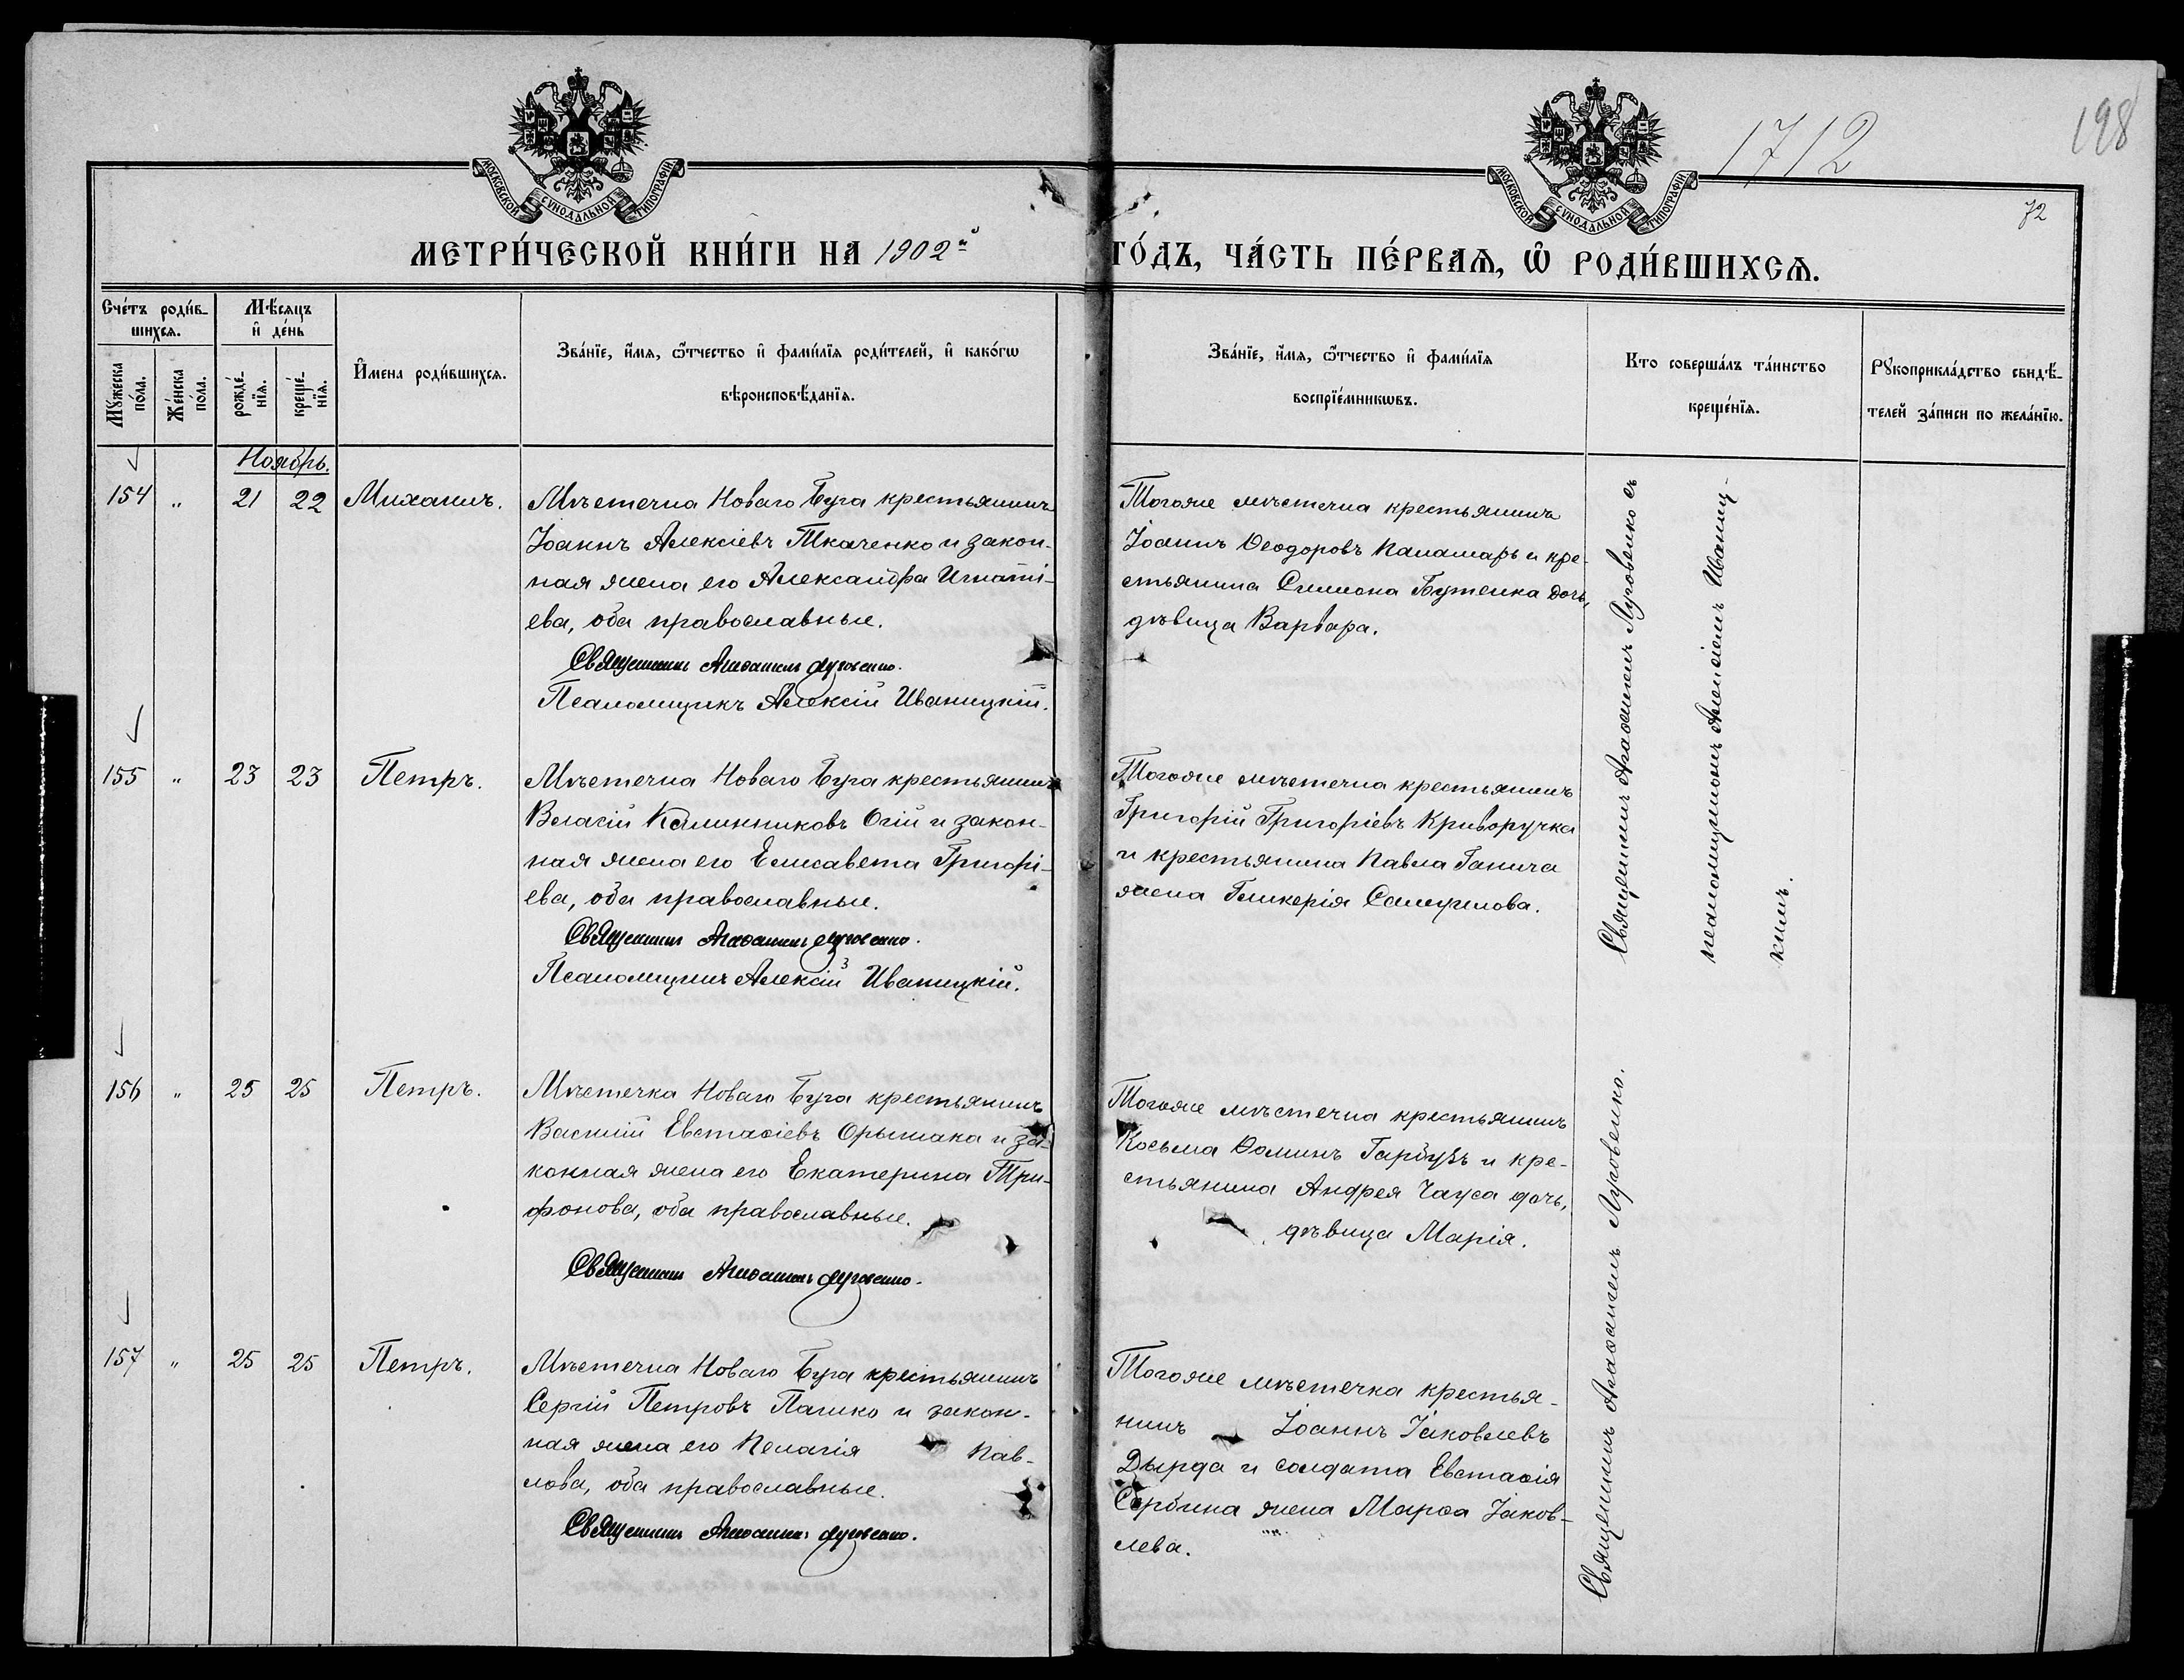 МОСКОВСКОЙ СѴНОДАЛЬНОЙ ТИПОГРАФІИ
МОСКОВСКОЙ СѴНОДАЛЬНОЙ ТИПОГРАФІИ
1712
198
72
МЕТРИ́ЧЕСКОЙ КНИ́ГИ НА 1902й
ГО́ДЪ, ЧА́СТЬ ПЕ́РВАЯ, Ѡ РОДИ́ВШИХСЯ.
Сче́тъ роди́в-
шихся.
Мꙋжеска по́ла.
Же́нска по́ла.
Мѣ́сяцъ
и҆ де́нь
рожде́-
нїя.
креще́-
нїя.
И҆́мена роди́вшихся.
Зва́нїе, и҆́мя, ѻ҆́тчество и҆ фами́лїя роди́телей, и҆ како́гѡ
вѣроисповѣ́данїя.
Зва́нїе, и҆́мя, ѻ҆́тчество и҆ фами́лїя
воспрїе́мникѡвъ.
Кто соверша́лъ та́инство
креще́нїя.
Рꙋкоприкла́дство свидѣ́-
телей за́писи по жела́нїю.
Ноябрь.
154 " 21 22 Михаилъ.
Мѣстечка Новаго Буга крестьянинъ
Іоаннъ Алексіевъ Ткаченко и закон-
ная жена его Александра Игнаті-
ева, оба православные.
Священникъ Агаѳангелъ Луговенко.
Псаломщикъ Алексій Иваницкій.
Тогоже мѣстечка крестьянинъ
Іоаннъ Ѳеодоровъ Паламарь и кре-
стьянина Симеона Бутенка дочь,
дѣвица Варвара.
155 " 23 23 Петръ.
Мѣстечка Новаго Буга крестьянинъ
Власій Калинниковъ Огій и закон-
ная жена его Елисавета Григорі-
ева, оба православные.
Священникъ Агаѳангелъ Луговенко.
Псаломщикъ Алексій Иваницкій.
Тогоже мѣстечка крестьянинъ
Григорій Григоріевъ Криворучка
и крестьянина Павла Ганича
жена Гликерія Самуилова.
Священникъ Агаѳангелъ Луговенко съ
псаломщикомъ Алексіемъ Иваниц-
кимъ.
156 " 25 25 Петръ.
Мѣстечка Новаго Буга крестьянинъ
Василій Евстаѳіевъ Орышака и за-
конная жена его Екатерина Три-
фонова, оба православные.
Священникъ Агаѳангелъ Луговенко.
Тогоже мѣстечка крестьянинъ
Косьма Ѳоминъ Гарбузъ и кре-
стьянина Андрея Чауса дочь,
дѣвица Марія.
157 " 25 25 Петръ.
Мѣстечка Новаго Буга крестьянинъ
Сергій Петровъ Пашко и закон-
ная жена его Пелагія Пав-
лова, оба православные.
Священникъ Агаѳангелъ Луговенко.
Тогоже мѣстечка крестья-
нинъ Іоаннъ Іаковлевъ
Дырда и солдата Евстаѳія
Сербина жена Марѳа Іаков-
лева.
Священникъ Агаѳангелъ Луговенко.